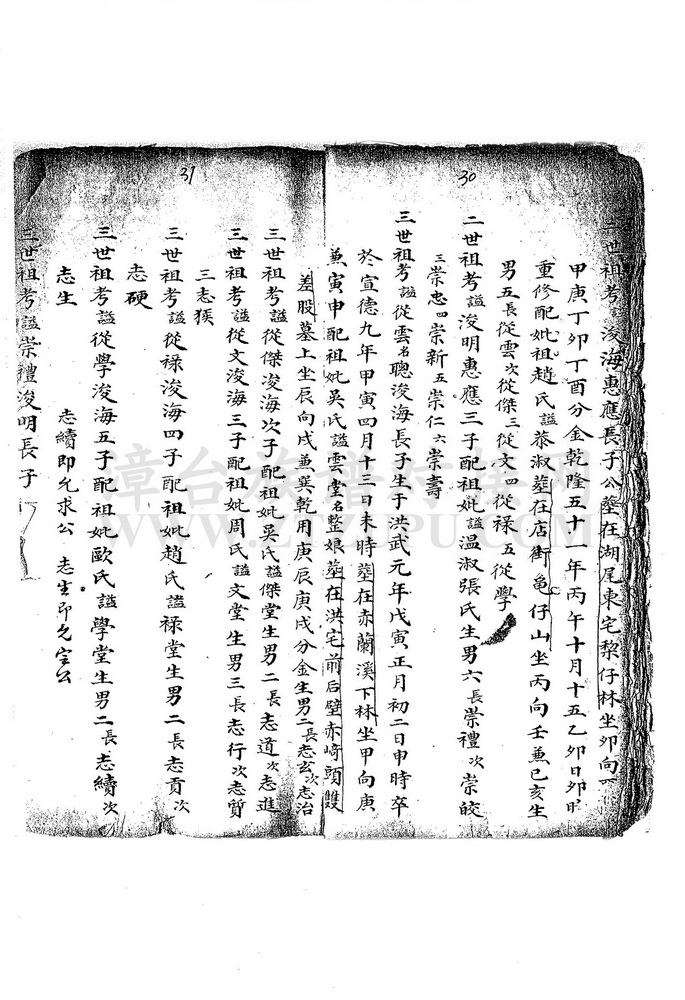 30
二世祖考謚浚海惠應長子公墓在湖尾東宅黎仔林坐卯向
甲庚丁卯丁酉分金乾隆五十一年丙午十月十五乙卯日卯時
重修配妣祖趙氏謚慕淑墓在店街龜仔山坐丙向壬兼巳亥生
男五長從雲次從傑三從文四從祿五從學
二世祖考謚浚明惠應三子配祖妣謚温淑張氏生男六長崇禮次崇皎
三崇忠四崇新五崇仁六崇壽
三世祖考謚從雲名聰浚海長子生于洪武元年戊寅正月初二日申時卒
於宣德九年甲寅四月十三日未時墓在赤蘭溪下林坐甲向庚
兼寅申配祖妣吳氏謚雲堂名整娘墓在洪宅前后壁赤崎頭雙
31
差股墓上坐辰向戌兼巽乾用庚辰庚戌分金生男二長志玄次志治
三世祖考謚從傑浚海次子配祖妣吳氏謚傑堂生男二長志道次志進
三世祖考謚從文浚海三子配祖妣周氏謚文堂生男三長志行次志質
三志猴
三世祖考謚從祿浚海四子配祖妣趙氏謚祿堂生男二長志貢次
志硬
三世祖考謚從學浚海五子配祖妣歐氏謚學堂生男二長志續次
志生 志續即允求公 志生即允宝公
三世祖考謚崇禮浚明長子
漳台族譜对接网
WWW.ZTZUPU.COM